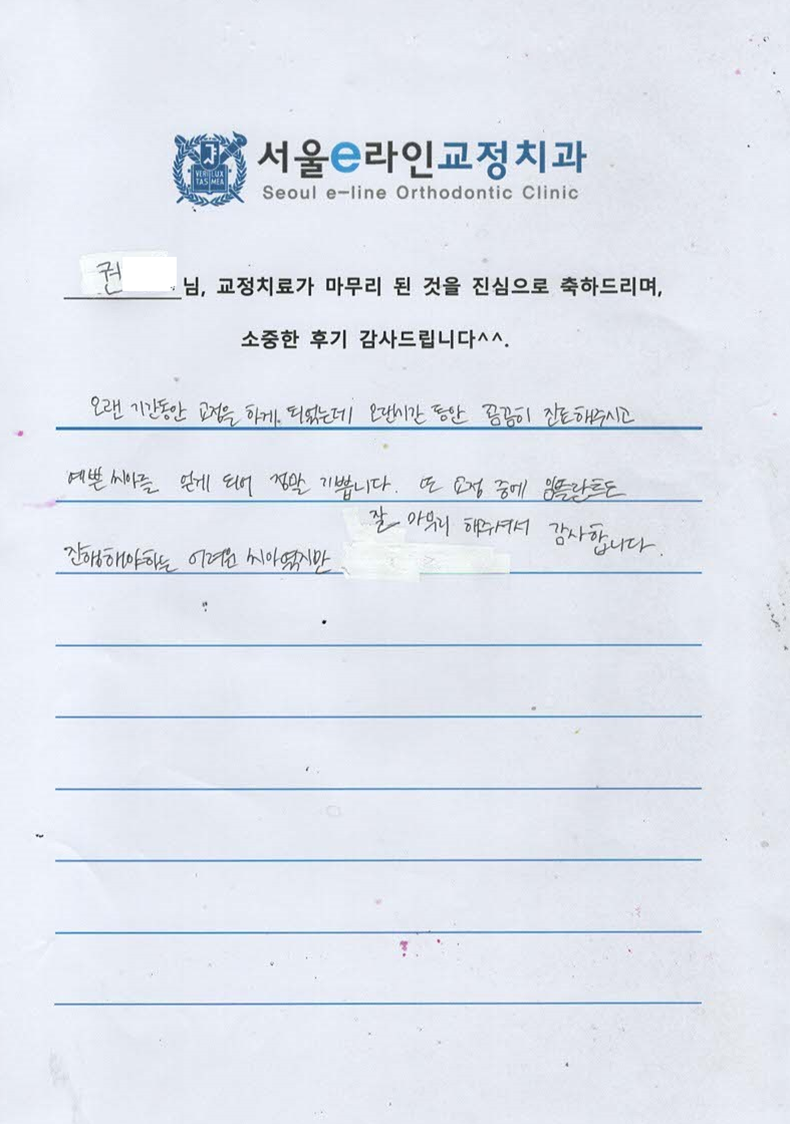 VERI LUX TAS MEA
서울e라인교정치과
Seoul e-line Orthodontic Clinic
권 님, 교정치료가 마무리 된 것을 진심으로 축하드리며,
소중한 후기 감사드립니다^^.
오랜 기간동안 교정을 하게 되었는데 오랜시간 동안 꼼꼼히 진료해주시고
예쁜 치아를 얻게 되어 정말 기쁩니다. 또 교정 중에 임플란트도
진행해야하는 어려운 치아였지만 잘 마무리 해주셔서 감사합니다.